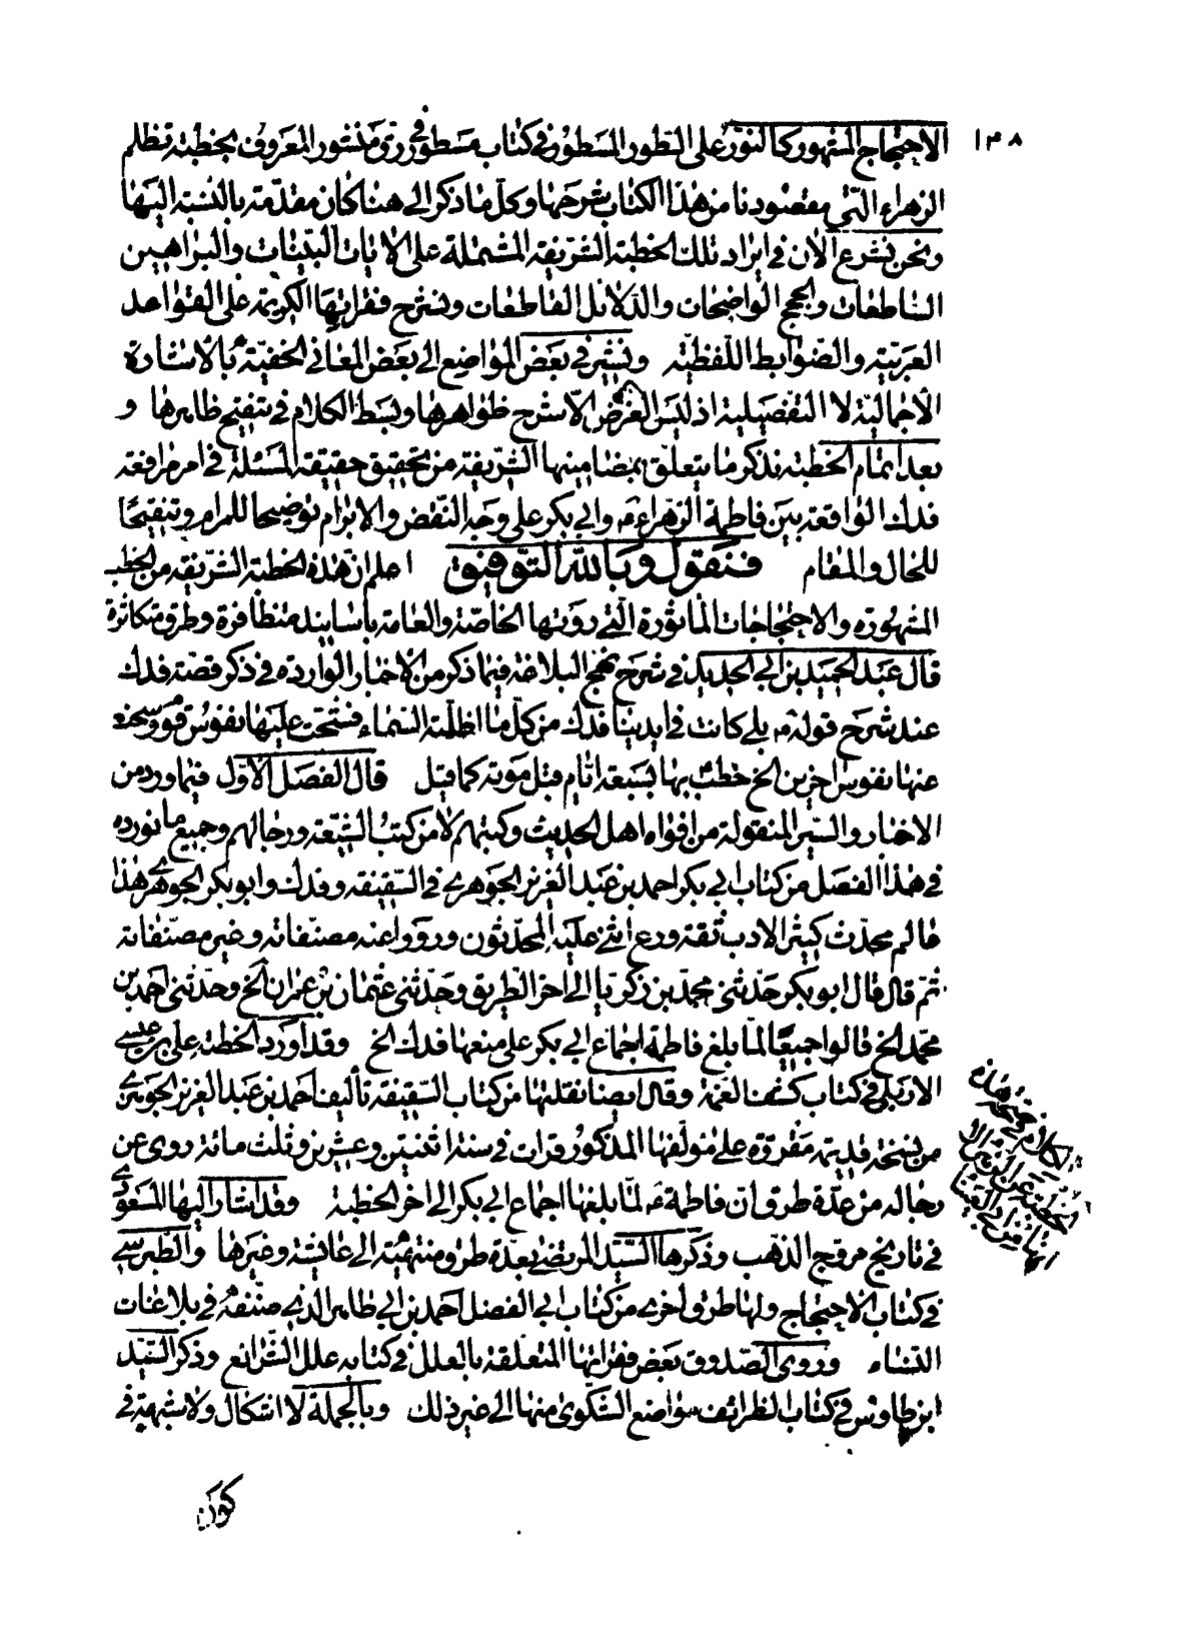 ١٣٨
الاحتجاج المشهور كالنور على الطور المسطور فى كتاب مسطور فى رق منشور المعروف بخطبة تظلم
الزهراء التى مقصودنا من هذا الكتاب شرحها وكل ما ذكر الى هنا كان مقدمة بالنسبة اليها
ونحن نشرع الان فى ايراد تلك الخطبة الشريفة المشتملة على الايات البينات والبراهين
الساطعات والحجج الواضحات والدلائل القاطعات ونشرح فقراتها الكريمة على القواعد
العربية والضوابط اللفظية ونشير فى بعض المواضع الى بعض المعانى الخفية بالاشارة
الاجمالية لا التفصيلية اذ ليس الغرض الا شرح ظواهرها وبسط الكلام فى تنقيح ظاهرها و
بعد اتمام الخطبة نذكر ما يتعلق بمضامينها الشريفة من تحقيق حقيقة المسئلة فى امر مرافعة
فدك الواقعة بين فاطمة الزهراء ع وابى بكر على وجه النقض والابرام توضيحا للمرام وتنقيحا
للحال والمقام فنقول وبالله التوفيق اعلم ان هذه الخطبة الشريفة من الخطب
المشهورة والاحتجاجات المأثورة التى روتها الخاصة والعامة باسانيد متظافرة وطرق متكاثرة
قال عبد الحميد بن ابى الحديد فى شرح نهج البلاغة فيما ذكر من الاخبار الواردة فى ذكر قصة فدك
عند شرح قوله ع بلى كانت فى ايدينا فدك من كل ما اظلته السماء فشحت عليها نفوس قوم وسخت
عنها نفوس اخرين الخ خطب بها بسبعة ايام قبل موته كما قيل قال الفصل الاول فيما ورد من
الاخبار والسير المنقولة من افواه اهل الحديث وكتبهم لا من كتب الشيعة ورجالهم وجميع ما نورده
فى هذا الفصل من كتاب ابى بكر احمد بن عبد العزيز الجوهرى فى السقيفة وفدك وابو بكر الجوهرى هذا
عالم محدث كثير الادب ثقة ورع اثنى عليه المحدثون ورووا عنه مصنفاته وغير مصنفاته
ثم قال قال ابو بكر حدثنى محمد بن زكريا الى اخر الطريق وحدثنى عثمان بن عمران الخ وحدثنى احمد بن
محمد الخ قالوا جميعا لما بلغ فاطمة اجماع ابى بكر على منعها فدك الخ وقد اورد الخطبة على بن عيسى
الاربلى فى كتاب كشف الغمة وقال ايضا نقلتها من كتاب السقيفة تأليف احمد بن عبد العزيز الجوهرى
من نسخة قديمة مقروة على مؤلفها المذكور قرات فى سنة اثنتين وعشرين وثلث مائة روى عن
رجاله من عدة طرق ان فاطمة ع لما بلغها اجماع ابى بكر الى اخر الخطبة وقد اشار اليها المسعودى
فى تاريخ مروج الذهب وذكرها السيد المرتضى بعدة طرق منتهية الى عايشة وغيرها والطبرسى
فى كتاب الاحتجاج ولها طرق اخرى من كتاب ابى الفضل احمد بن ابى طاهر الذى صنفه فى بلاغات
النساء وروى الصدوق بعض فقراتها المتعلقة بالعلل فى كتابه علل الشرائع وذكر السيد
ابن طاوس فى كتاب الطرائف مواضع الشكوى منها الى غير ذلك وبالجملة لا اشكال ولا شبهة فى
كون